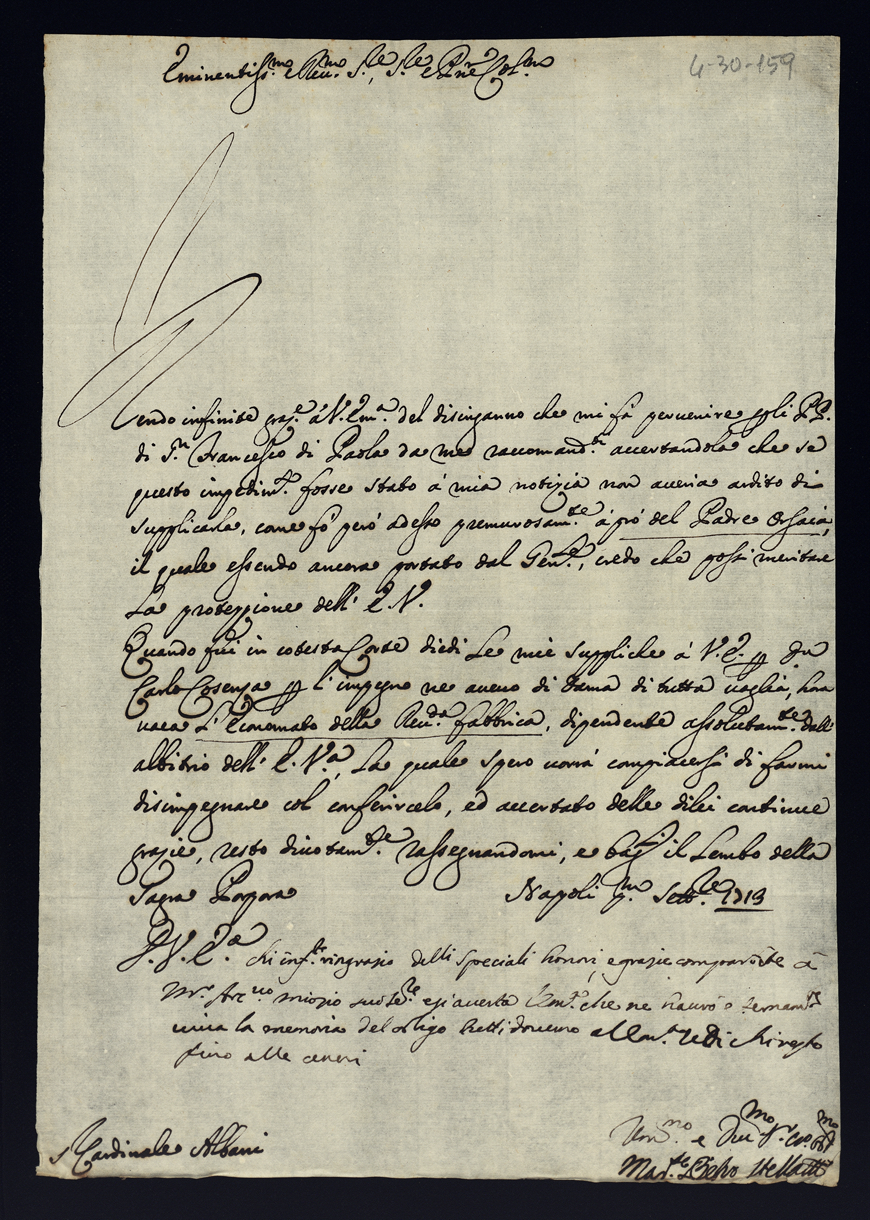 Eminentiss.mo e Reu.mo S.re, S.re e Pne Col.mo
4-30-159
Rendo infinite graz.e à V. Em.a del disinganno che mi fà peruenire p gli PP.
di S.n Francesco di Paola da me raccomand.ti accertandola che se
questo impedim.to fosse stato à mia notizia non aueria ardito di
supplicarla, come fò però adesso premurosam.te à prò del Padre Orsaia,
il quale essendo ancora portato dal Gen.le, credo che possi meritare
La proteppione dell' E.V.
Quando fui in cotesta Corte diedi Le mie suppliche à V.E. p Dn
Carlo Cosenza p l'impegno ne aueuo di Dama di tutta uaglia, hora
uaca L'Economato della Reu.da fabbrica, dipendente assolutam.te dall'
albitrio dell' E.V.a, La quale spero uorrà compiacersi di farmi
disimpegnare col conferircelo, ed accertato delle dilei continue
grazie, resto diuotam.te rassegnandomi, e bag.o il Lembo della
Sagra Porpora Napoli p.mo Sett.re 1713
P. V. E.a di inf.te ringrazio delli speciali honori, e grazie compartite à
Mr. Arc.uo mio zio suo Se.re e l'accerto che ne haurò
uiua la memoria del obligo
fino alle ceneri
S Cardinale Albani
Um.mo e Diu.mo S.r
Mar.se